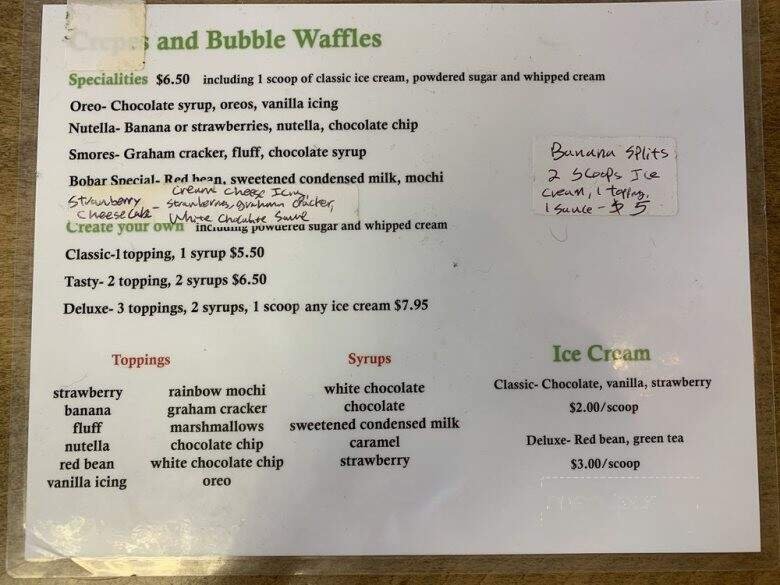 Crepes and Bubble Waffles
Specialities $6.50 including 1 scoop of classic ice cream, powdered sugar and whipped cream
Oreo- Chocolate syrup, oreos, vanilla icing
Nutella- Banana or strawberries, nutella, chocolate chip
Smores- Graham cracker, fluff, chocolate syrup
Bobar Special- Red bean, sweetened condensed milk, mochi
Strawberry Cheesecake - Cream cheese Icing,
strawberries, graham cracker,
White Chocolate Sauce
Banana Splits
2 Scoops Ice
Cream, 1 topping,
1 sauce - $5
Create your own including powdered sugar and whipped cream
Classic-1 topping, 1 syrup $5.50
Tasty- 2 topping, 2 syrups $6.50
Deluxe- 3 toppings, 2 syrups, 1 scoop any ice cream $7.95
Toppings
strawberry
banana
fluff
nutella
red bean
vanilla icing
rainbow mochi
graham cracker
marshmallows
chocolate chip
white chocolate chip
oreo
Syrups
white chocolate
chocolate
sweetened condensed milk
caramel
strawberry
Ice Cream
Classic- Chocolate, vanilla, strawberry
$2.00/scoop
Deluxe- Red bean, green tea
$3.00/scoop